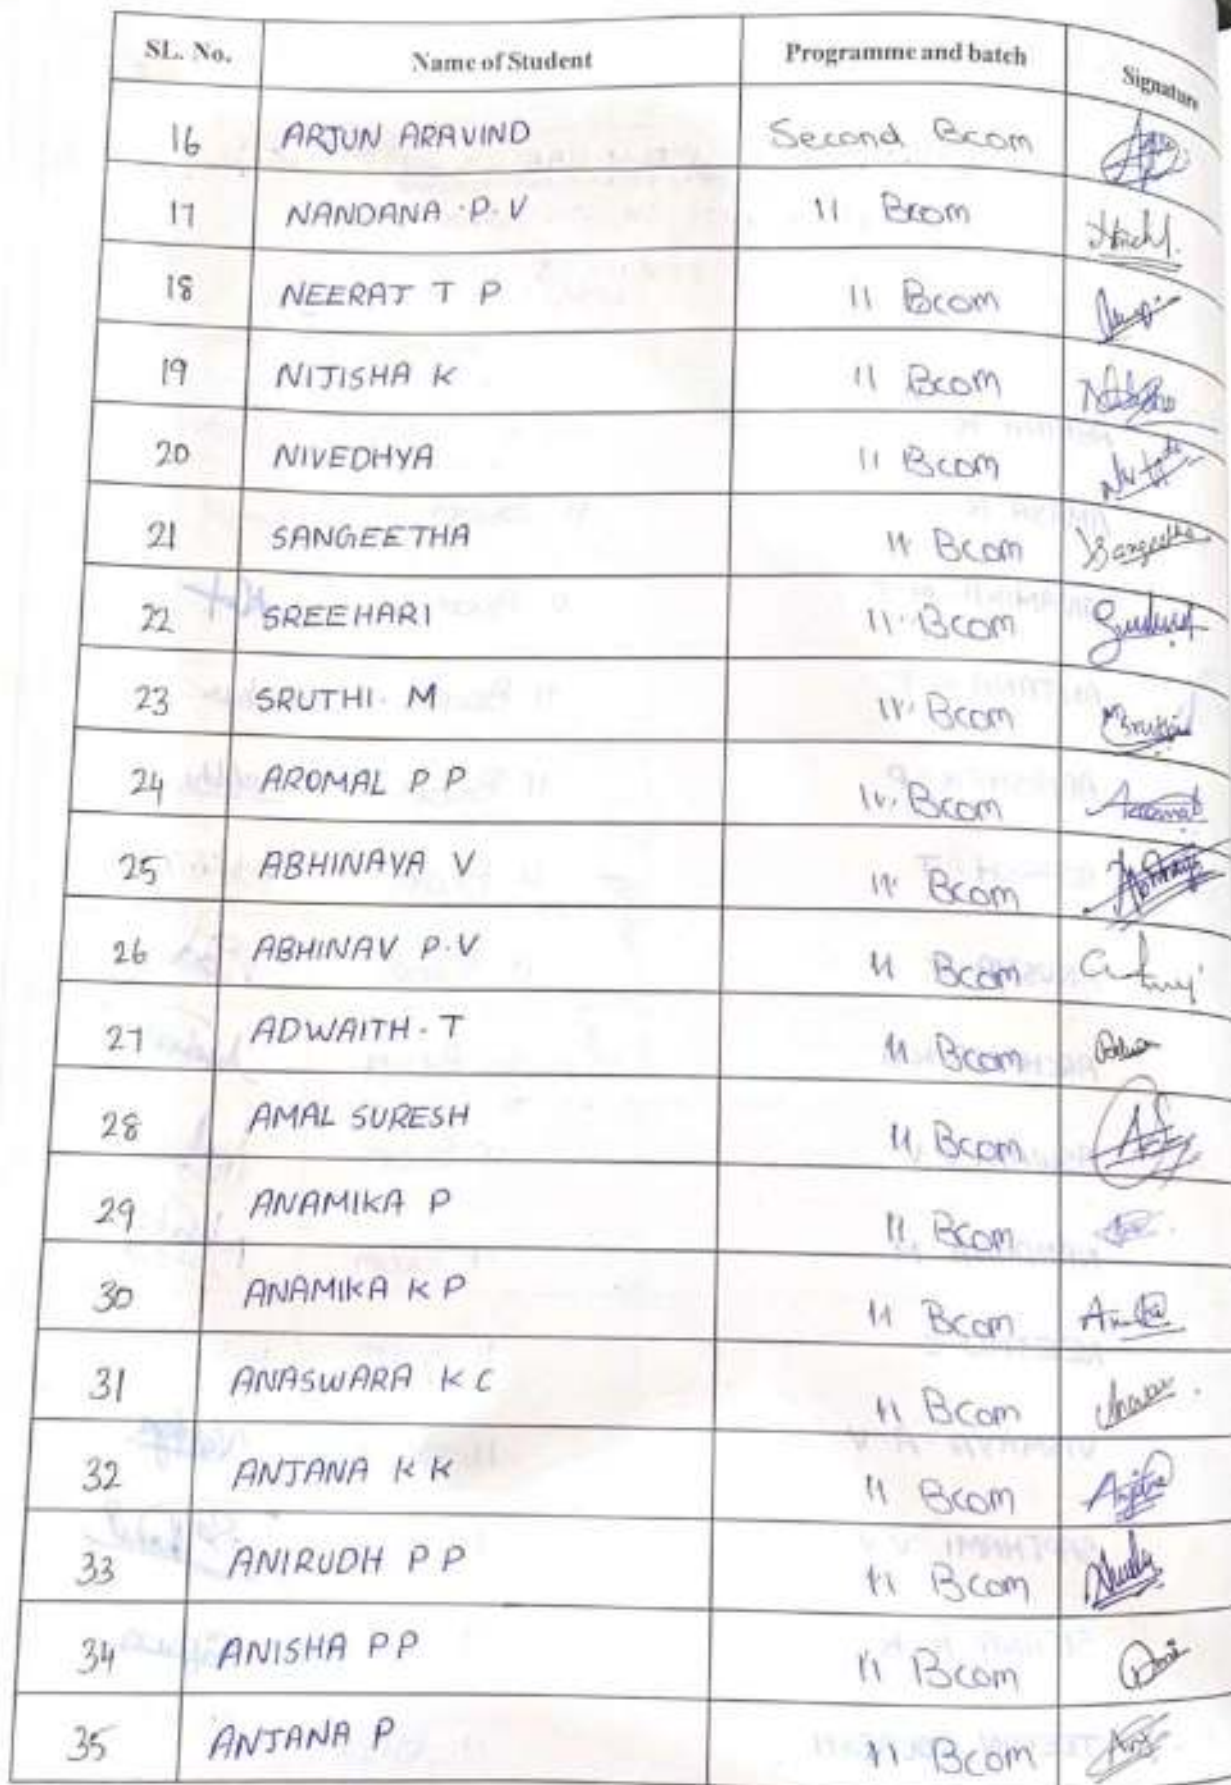 SL. No. Name of Student Programme and batch Signature
16 ARJUN ARAVIND Second Bcom
17 NANDANA .P.V 11 Bcom
18 NEERAJ T P 11 Bcom
19 NIJISHA K 11 Bcom
20 NIVEDHYA 11 Bcom
21 SANGEETHA 11 Bcom Sangeetha
22 SREEHARI 11 Bcom
23 SRUTHI. M 11 Bcom Sruthi
24 AROMAL P P 11 Bcom Aromal
25 ABHINAYA V 11 Bcom
26 ABHINAV P.V 11 Bcom
27 ADWAITH. T 11 Bcom
28 AMAL SURESH 11 Bcom
29 ANAMIKA P 11 Bcom
30 ANAMIKA K P 11 Bcom
31 ANASWARA K C 11 Bcom
32 ANJANA K K 11 Bcom
33 ANIRUDH P P 11 Bcom
34 ANISHA P P 11 Bcom
35 ANJANA P 11 Bcom